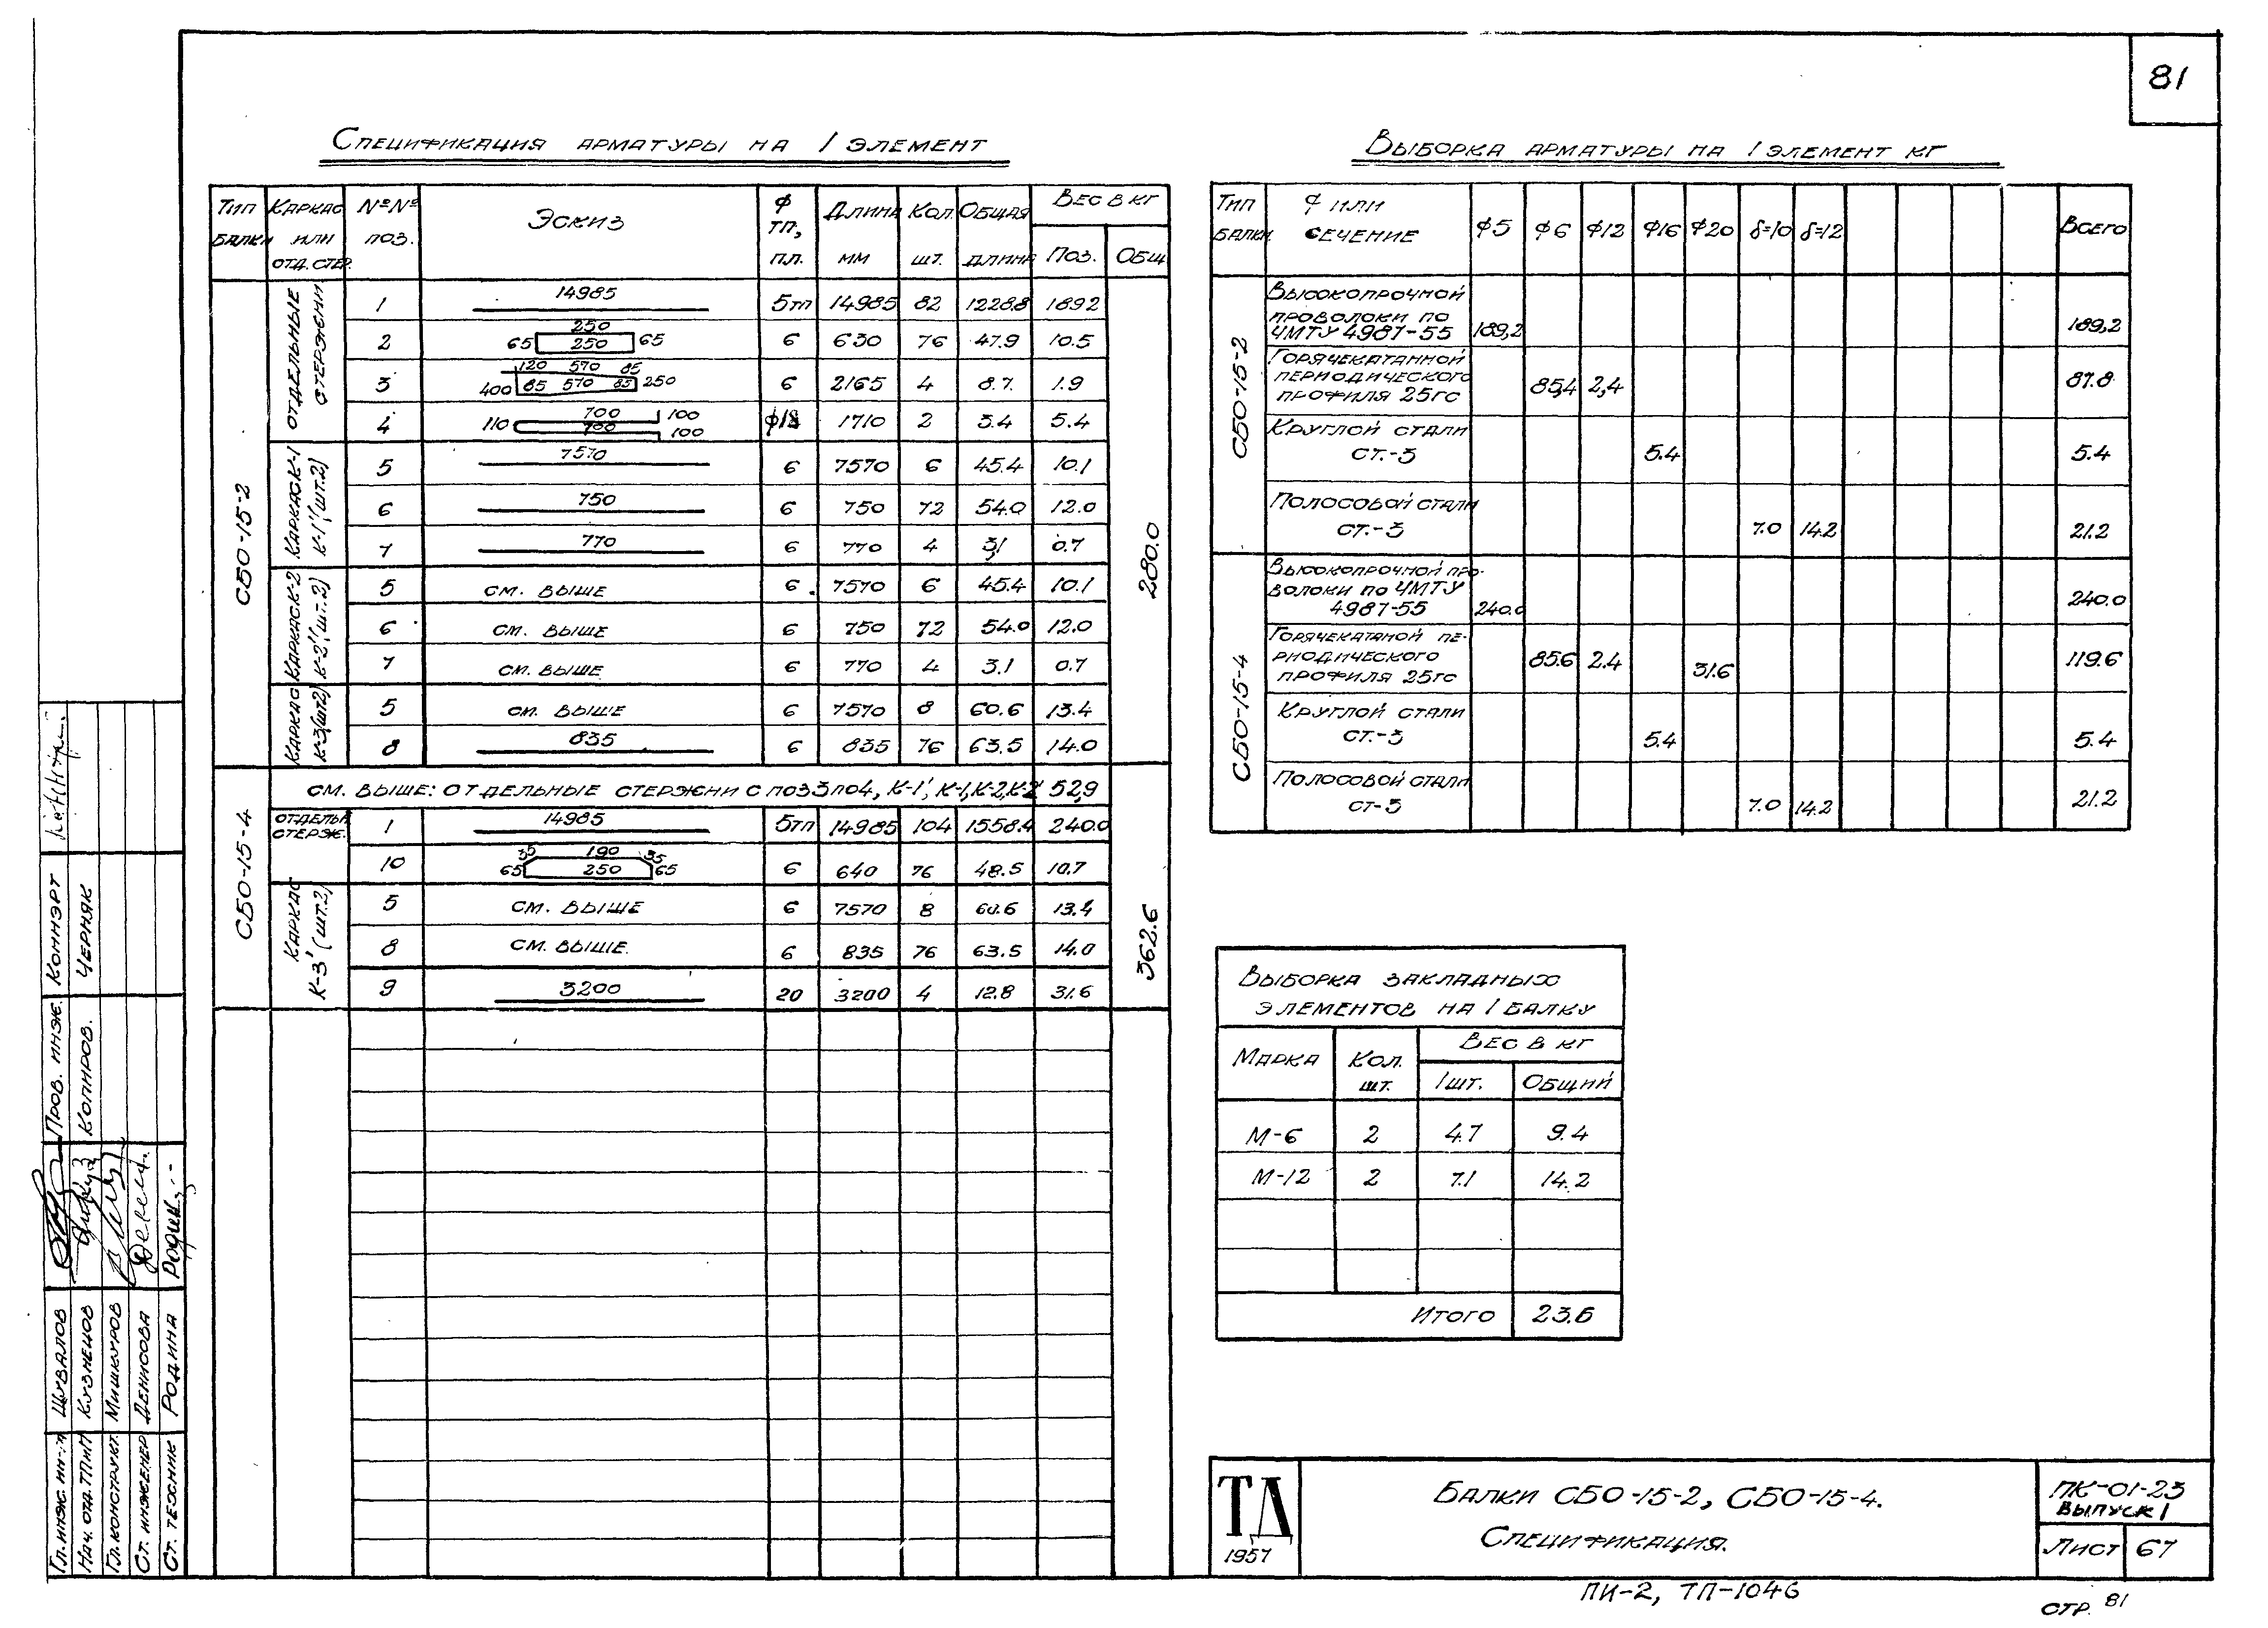 81
Спецификация арматуры на 1 элемент
Тип балки | Каркас или отд. стер. | №№ поз. | Эскиз | Ф тп, пл. | Длина мм | Кол. шт. | Общая длина | Вес в кг Поз. | Общ
СБО-15-2
Отдельные стержни
1 | 14985 | 5тп | 14985 | 82 | 1228.8 | 189.2
2 | 250 65 250 65 | 6 | 630 | 76 | 47.9 | 10.5
3 | 120 570 85 400 85 570 85 250 | 6 | 2165 | 4 | 8.7 | 1.9
4 | 700 100 110 700 100 | 1710 | 2 | 3.4 | 5.4
Каркас К-1 К-1' (шт.2)
5 | 7570 | 6 | 7570 | 6 | 45.4 | 10.1
6 | 750 | 6 | 750 | 72 | 54.0 | 12.0
7 | 770 | 6 | 770 | 4 | 3,1 | 0.7
Каркас К-2 К-2' (шт.2)
5 | см. выше | 6 | 7570 | 6 | 45.4 | 10.1
6 | см. выше | 6 | 750 | 72 | 54.0 | 12.0
7 | см. выше | 6 | 770 | 4 | 3.1 | 0.7
Каркас К-3 (шт.2)
5 | см. выше | 6 | 7570 | 8 | 60.6 | 13.4
8 | 835 | 6 | 835 | 76 | 63.5 | 14.0
280.0
СБО-15-4
см. выше: отдельные стержни с поз 3 по 4, К-1', К-1, К-2, К-2' 52,9
Отдельн. стерж.
1 | 14985 | 5тп | 14985 | 104 | 1558.4 | 240.0
10 | 35 190 35 65 250 65 | 6 | 640 | 76 | 48.5 | 10.7
Каркас К-3' (шт.2)
5 | см. выше | 6 | 7570 | 8 | 60.6 | 13.4
8 | см. выше. | 6 | 835 | 76 | 63.5 | 14.0
9 | 3200 | 20 | 3200 | 4 | 12.8 | 31.6
362.6
Выборка арматуры на 1 элемент кг
Тип балки | Ф или сечение | Ф5 | Ф6 | Ф12 | Ф16 | Ф20 | δ=10 | δ=12 | Всего
СБО-15-2
Высокопрочной проволоки по ЧМТУ 4987-55 | 189,2 | 189,2
Горячекатанной периодического профиля 25гс | 85,4 | 2,4 | 87.8
Круглой стали ст.-3 | 5.4 | 5.4
Полосовой стали ст.-3 | 7.0 | 14.2 | 21.2
СБО-15-4
Высокопрочной проволоки по ЧМТУ 4987-55 | 240.0 | 240.0
Горячекатаной периодического профиля 25гс | 85.6 | 2.4 | 31.6 | 119.6
Круглой стали ст.-3 | 5.4 | 5.4
Полосовой стали ст-3 | 7.0 | 14.2 | 21.2
Выборка закладных
элементов на 1 балку
Марка | Кол. шт. | Вес в кг 1шт. | Общий
М-6 | 2 | 4.7 | 9.4
М-12 | 2 | 7.1 | 14.2
Итого 23.6
ТД
1957
Балки СБО-15-2, СБО-15-4.
Спецификация.
ПК-01-23
Выпуск 1
Лист 67
ПИ-2, ТП-1046
стр. 81
Пров. инж. Коннэрт
Копиров. Черняк
Гл. инж. ин-та Шувалов
Нач. отд. ТПиП Кузнецов
Гл. конструкт. Мишкуров
Ст. инженер Денисова
Ст. техник Родина